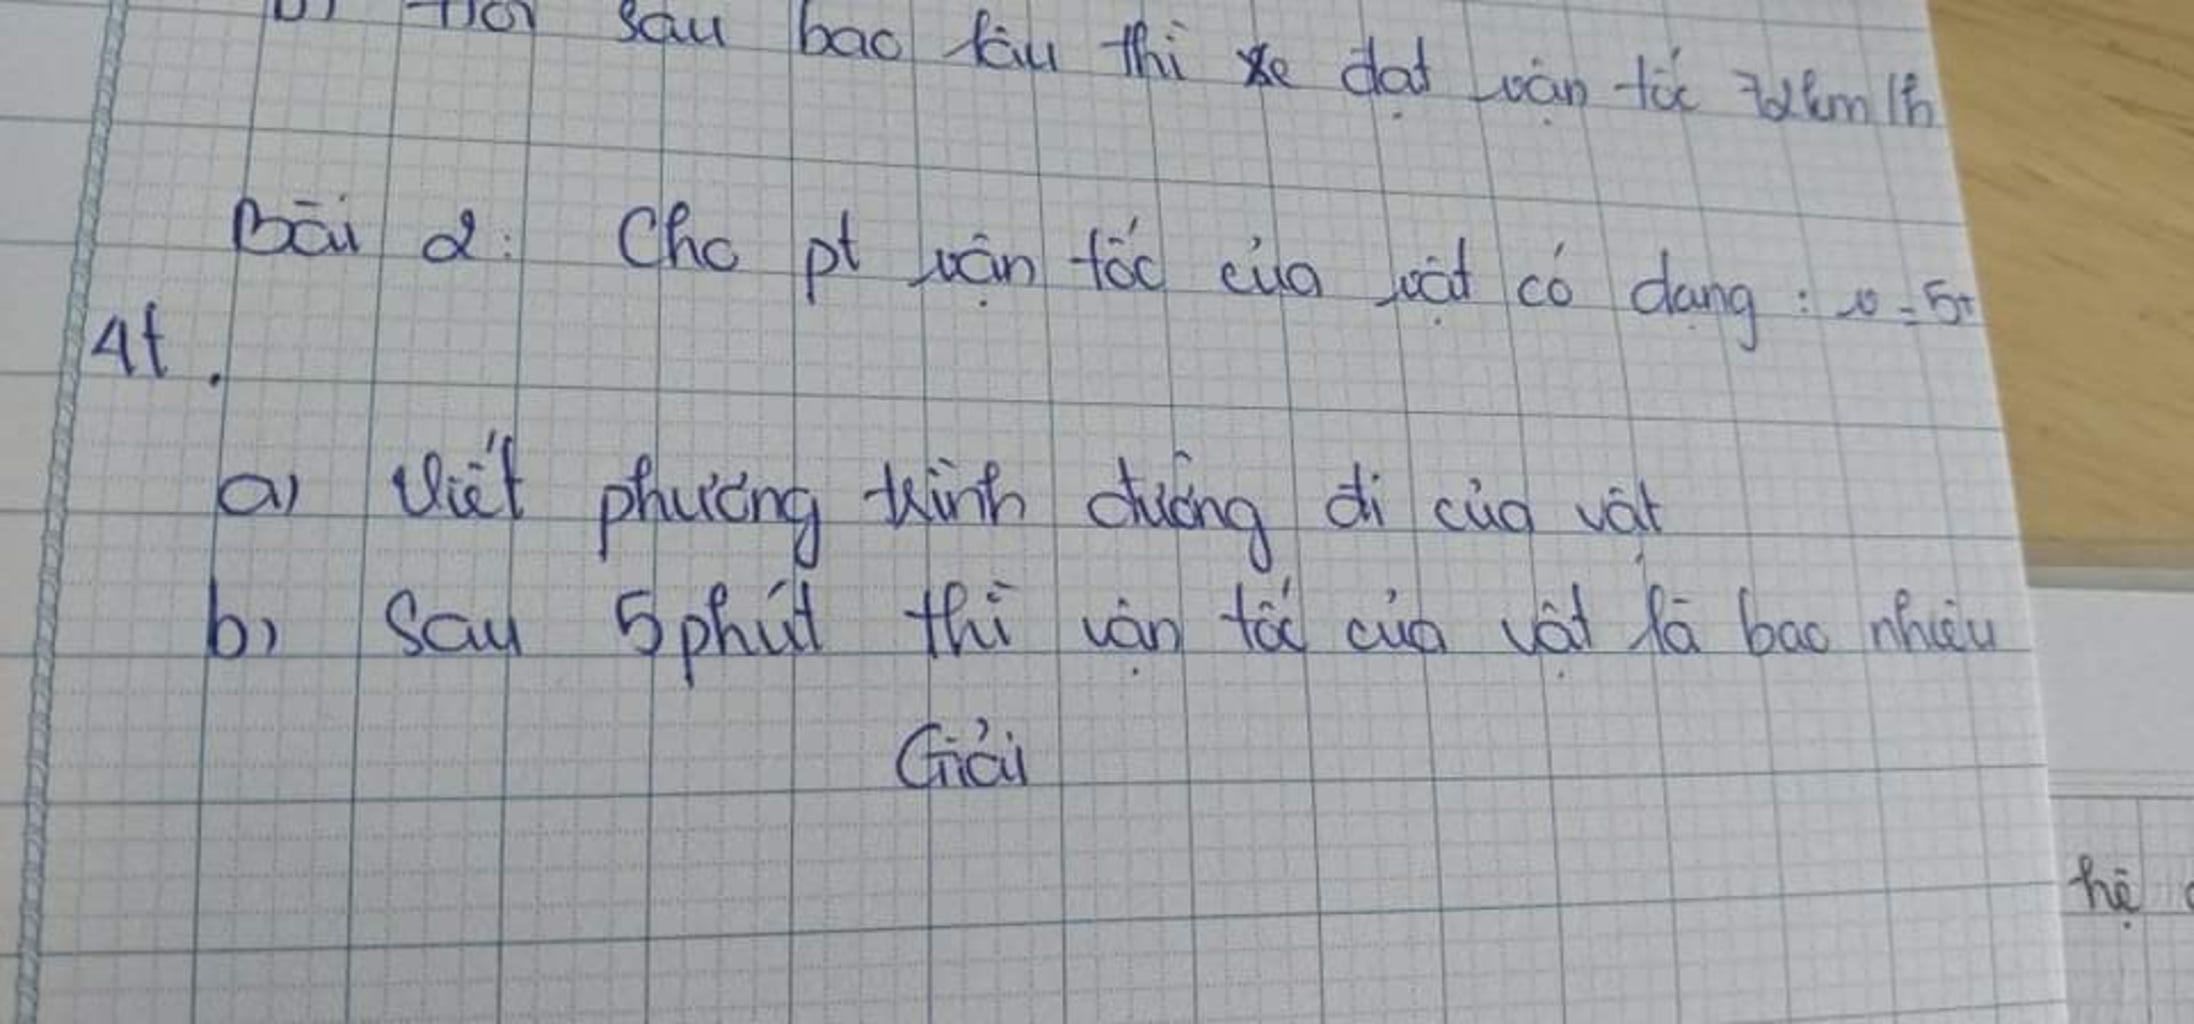 b) Hỏi sau bao lâu thì xe đạt vận tốc 72km/h
Bài 2: Cho pt vận tốc của vật có dạng: v = 5+
4t.
a) Viết phương trình đường đi của vật
b) Sau 5 phút thì vận tốc của vật là bao nhiêu
Giải
hệ